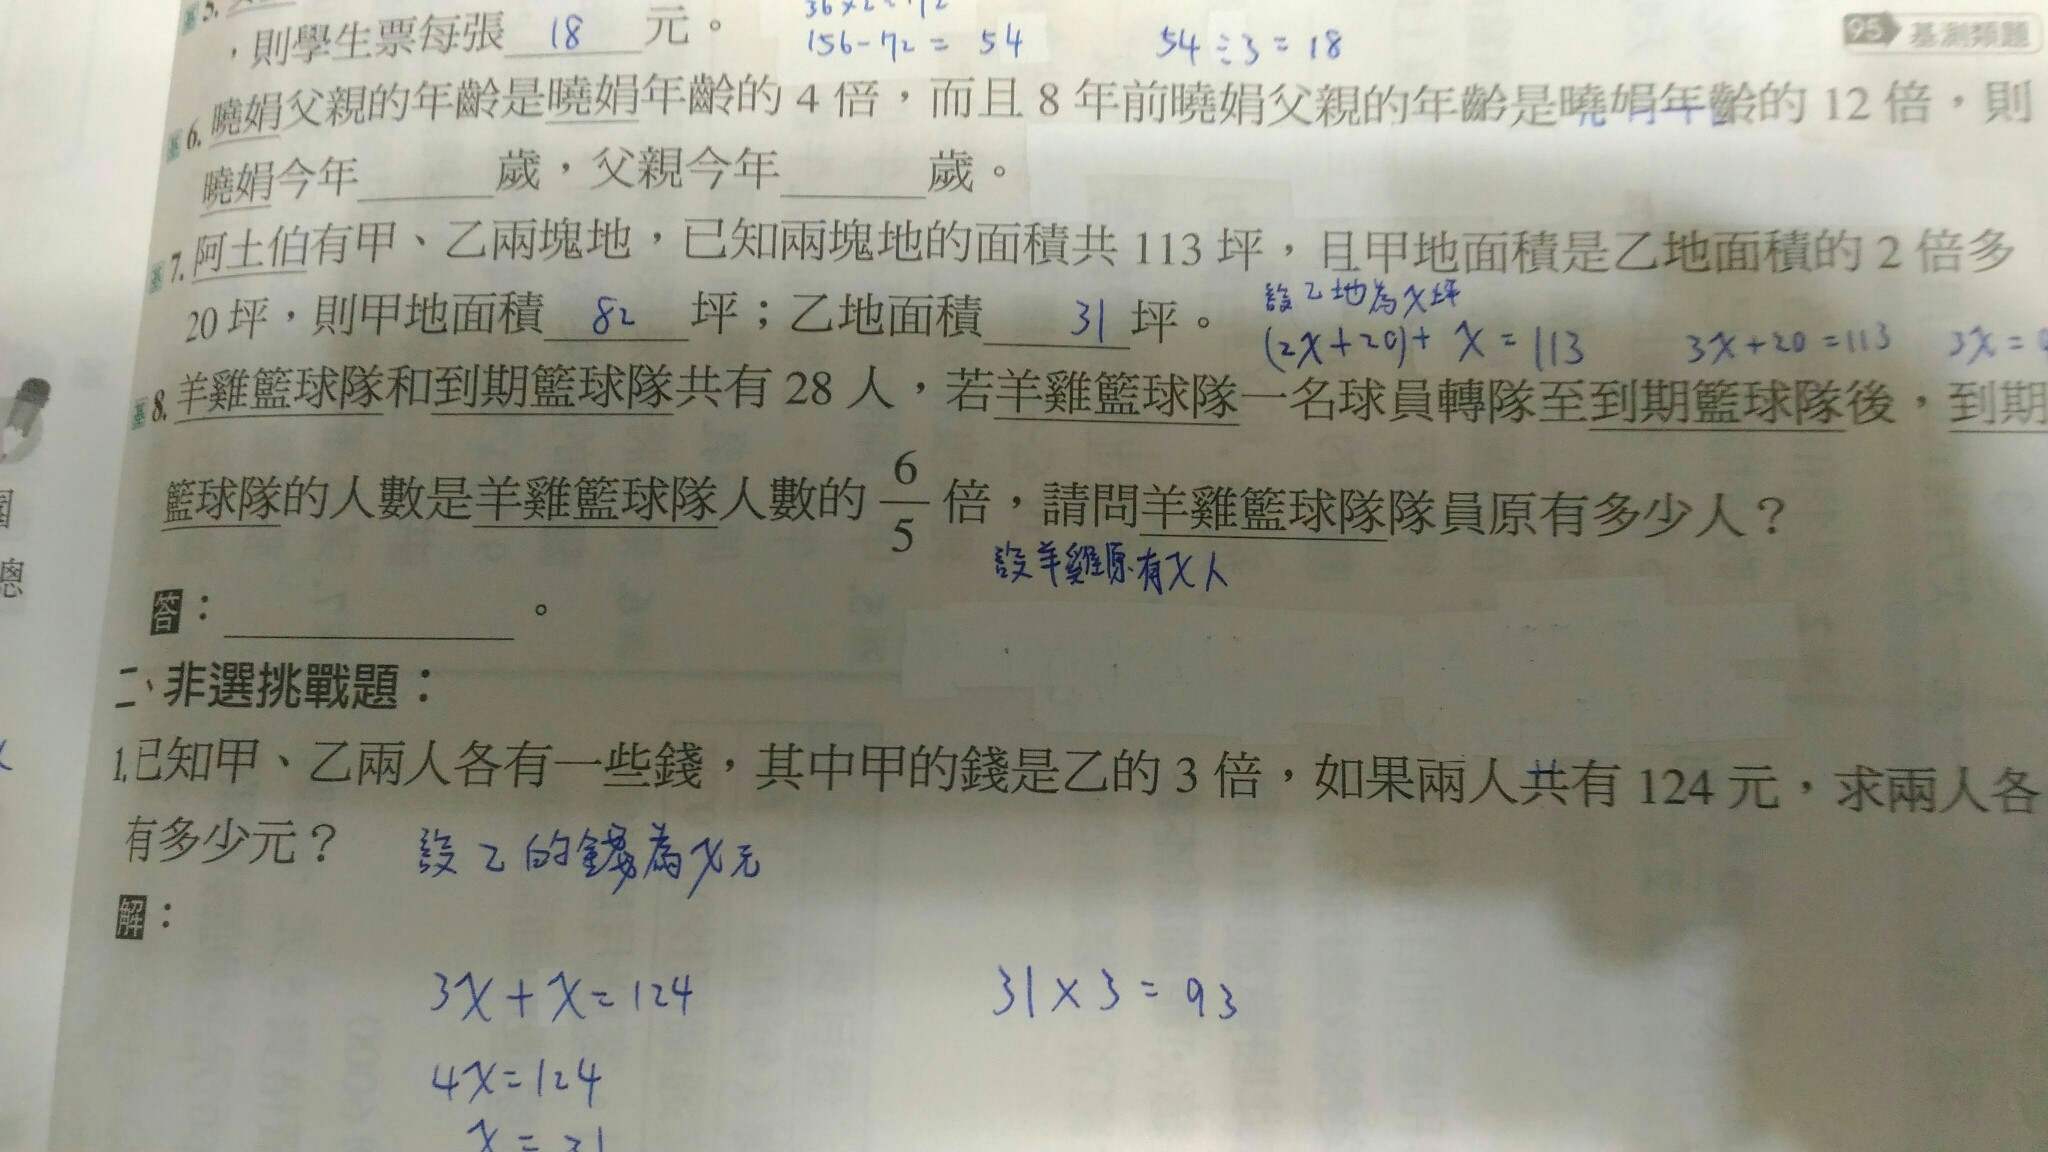 5.
36×2=72
，則學生票每張 18 元。 156-72= 54 54÷3=18
95 基測類題
基 6. 曉娟父親的年齡是曉娟年齡的 4 倍，而且 8 年前曉娟父親的年齡是曉娟年齡的 12 倍，則
曉娟今年______歲，父親今年______歲。
基 7. 阿土伯有甲、乙兩塊地，已知兩塊地的面積共 113 坪，且甲地面積是乙地面積的 2 倍多
20 坪，則甲地面積 82 坪；乙地面積 31 坪。 設乙地為x坪
(2x+20)+x=113 3x+20=113 3x=
基 8. 羊雞籃球隊和到期籃球隊共有 28 人，若羊雞籃球隊一名球員轉隊至到期籃球隊後，到期
籃球隊的人數是羊雞籃球隊人數的 6/5 倍，請問羊雞籃球隊隊員原有多少人？
設羊雞原有x人
答：____________。
二、非選挑戰題：
1.已知甲、乙兩人各有一些錢，其中甲的錢是乙的 3 倍，如果兩人共有 124 元，求兩人各
有多少元？ 設乙的錢為x元
解：
3x+x=124 31×3=93
4x=124
x=31